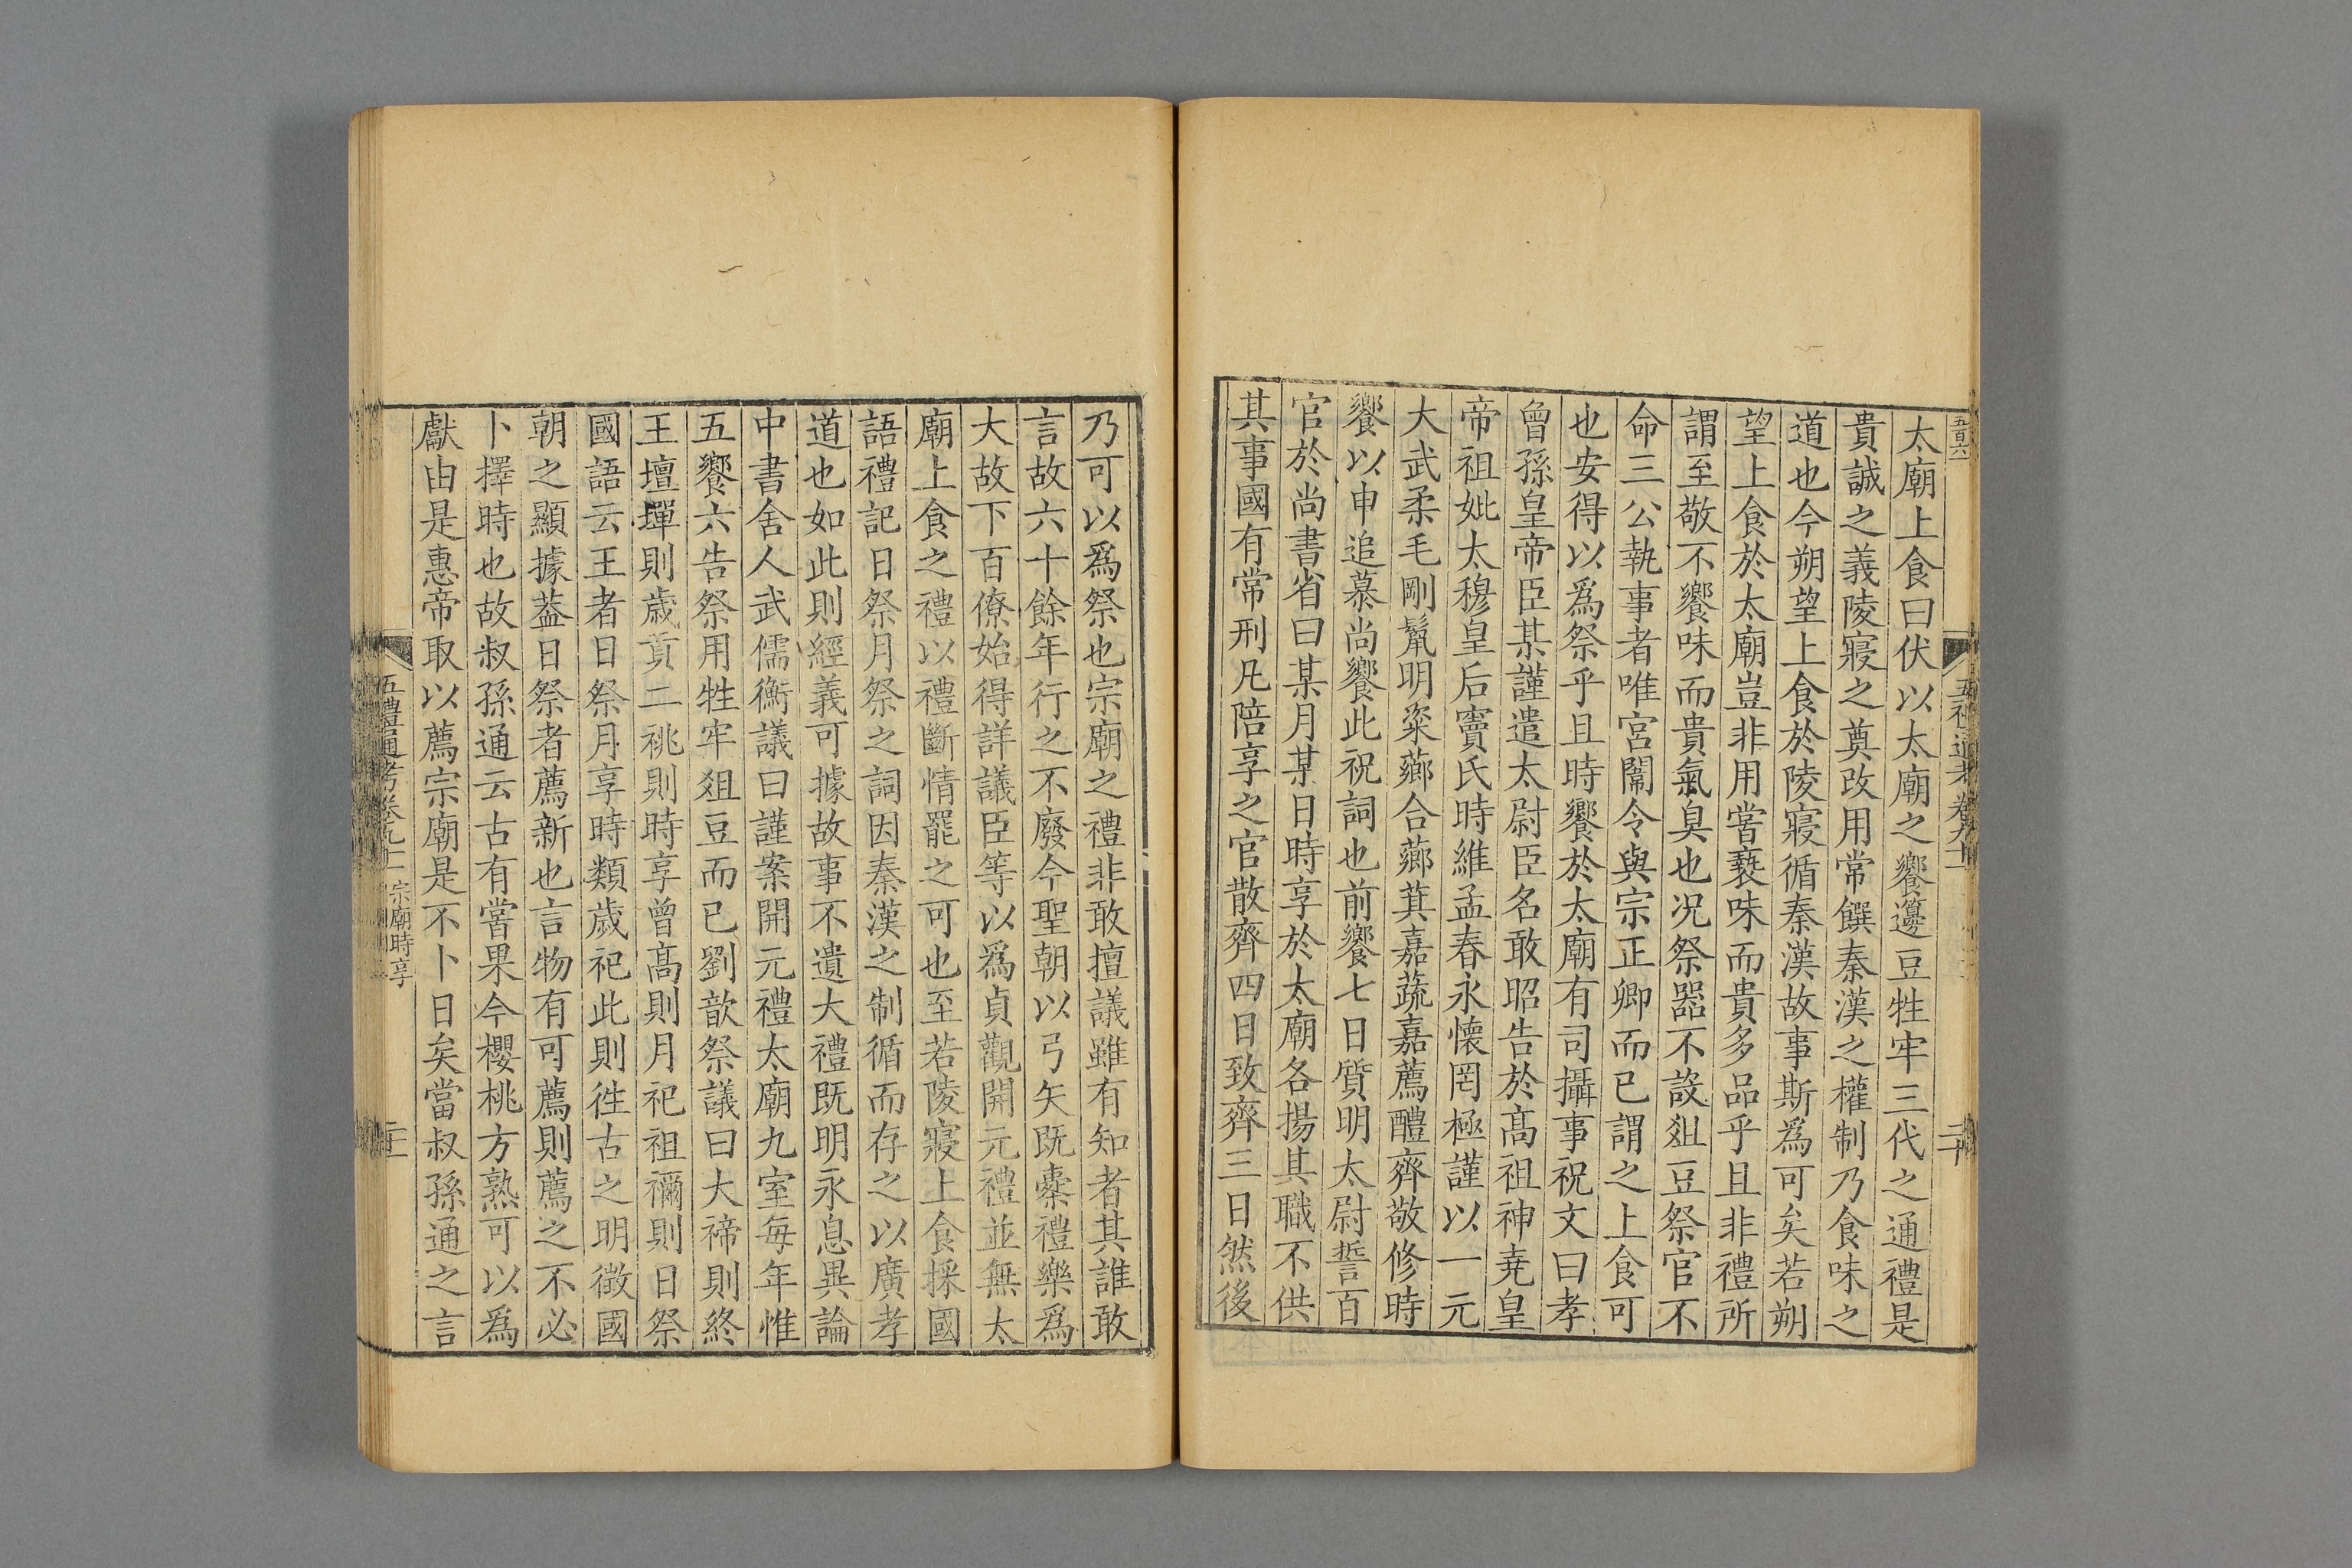 太廟上食曰伏以太廟之饗籩豆牲牢三代之通禮是
貴誠之義陵寢之奠改用常饌秦漢之權制乃食味之
道也今朔望上食於陵寢循秦漢故事斯為可矣若朔
望上食於太廟豈非用嘗䙝味而貴多品乎且非禮所
謂至敬不饗味而貴氣臭也况祭器不設爼豆祭官不
命三公執事者唯宮闈令與宗正卿而已謂之上食可
也安得以為祭乎且時饗於太廟有司攝事祝文曰孝
曾孫皇帝臣某謹遣太尉臣名敢昭告於高祖神堯皇
帝祖妣太穆皇后竇氏時維孟春永懷罔極謹以一元
大武柔毛剛鬛明粢薌合薌萁嘉蔬嘉薦醴齊敬修時
饗以申追慕尚饗此祝詞也前饗七日質明太尉誓百
官於尚書省曰某月某日時享於太廟各揚其職不供
其事國有常刑凡陪享之官散齊四日致齊三日然後
乃可以爲祭也宗廟之禮非敢擅議雖有知者其誰敢
言故六十餘年行之不廢今聖朝以弓矢既櫜禮樂爲
大故下百僚始得詳議臣等以爲貞觀開元禮並無太
廟上食之禮以禮斷情罷之可也至若陵寢上食採國
語禮記日祭月祭之詞因秦漢之制循而存之以廣孝
道也如此則經義可據故事不遺大禮既明永息異論
中書舍人武儒衡議曰謹案開元禮太廟九室每年惟
五饗六告祭用牲牢爼豆而已劉歆祭議曰大禘則終
王壇墠則歲貢二祧則時享曾高則月祀祖禰則日祭
國語云王者日祭月享時類歲祀此則徃古之明徵國
朝之顯據葢日祭者薦新也言物有可薦則薦之不必
卜擇時也故叔孫通云古有嘗果今櫻桃方熟可以爲
獻由是惠帝取以薦宗廟是不卜日矣當叔孫通之言
五禮通考卷九十 宗廟時享